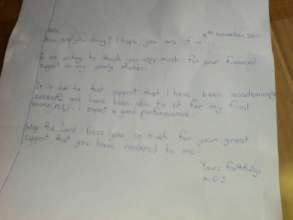 9th November 20
How are you doing? I hope you are
I am writing to thank you very much for your financial
support in my studies.
It is due to that support that I have been academically
successful and have been able to sit for my final
expect a good performance.
May the Lord bless you so much for your great
support that you have rendered to me.
Yours faithfully